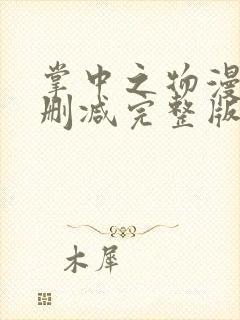 掌中之物漫
删减完整版
木犀